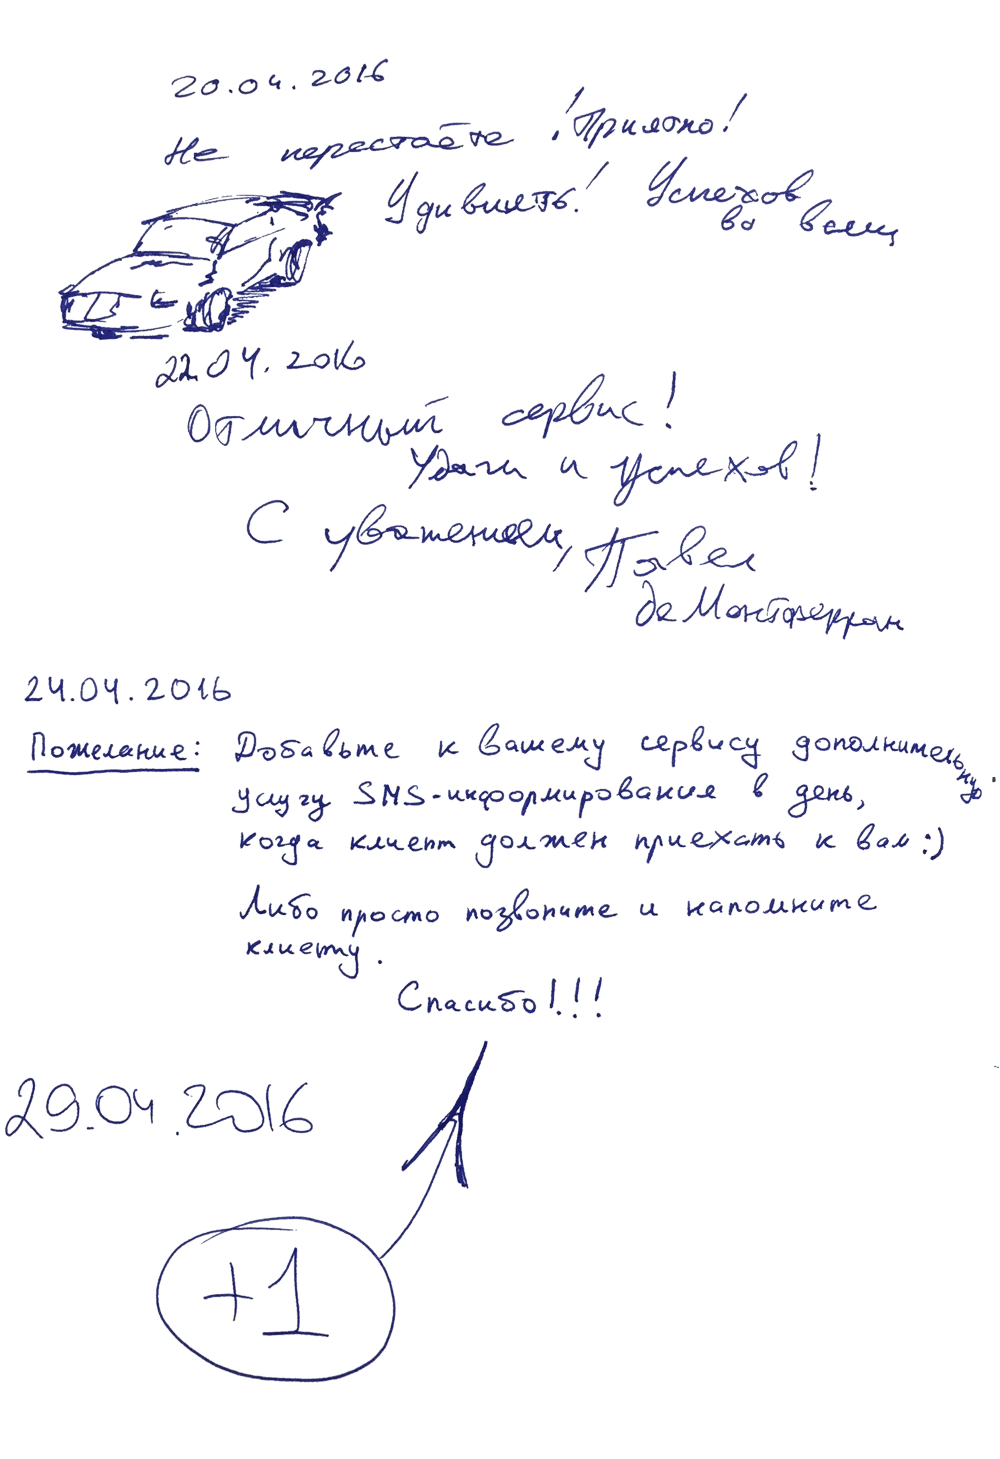 20.04.2016
Не перестаёте ! Приятно!
Удивлять! Успехов
во всем
22.04.2016
Отличный сервис!
Удачи и успехов!
С уважением, Павел
де Монтферран
24.04.2016
Пожелание: Добавьте к вашему сервису дополнительную
услугу SMS-информирования в день,
когда клиент должен приехать к вам :)
Либо просто позвоните и напомните
клиенту.
Спасибо!!!
29.04.2016
+1